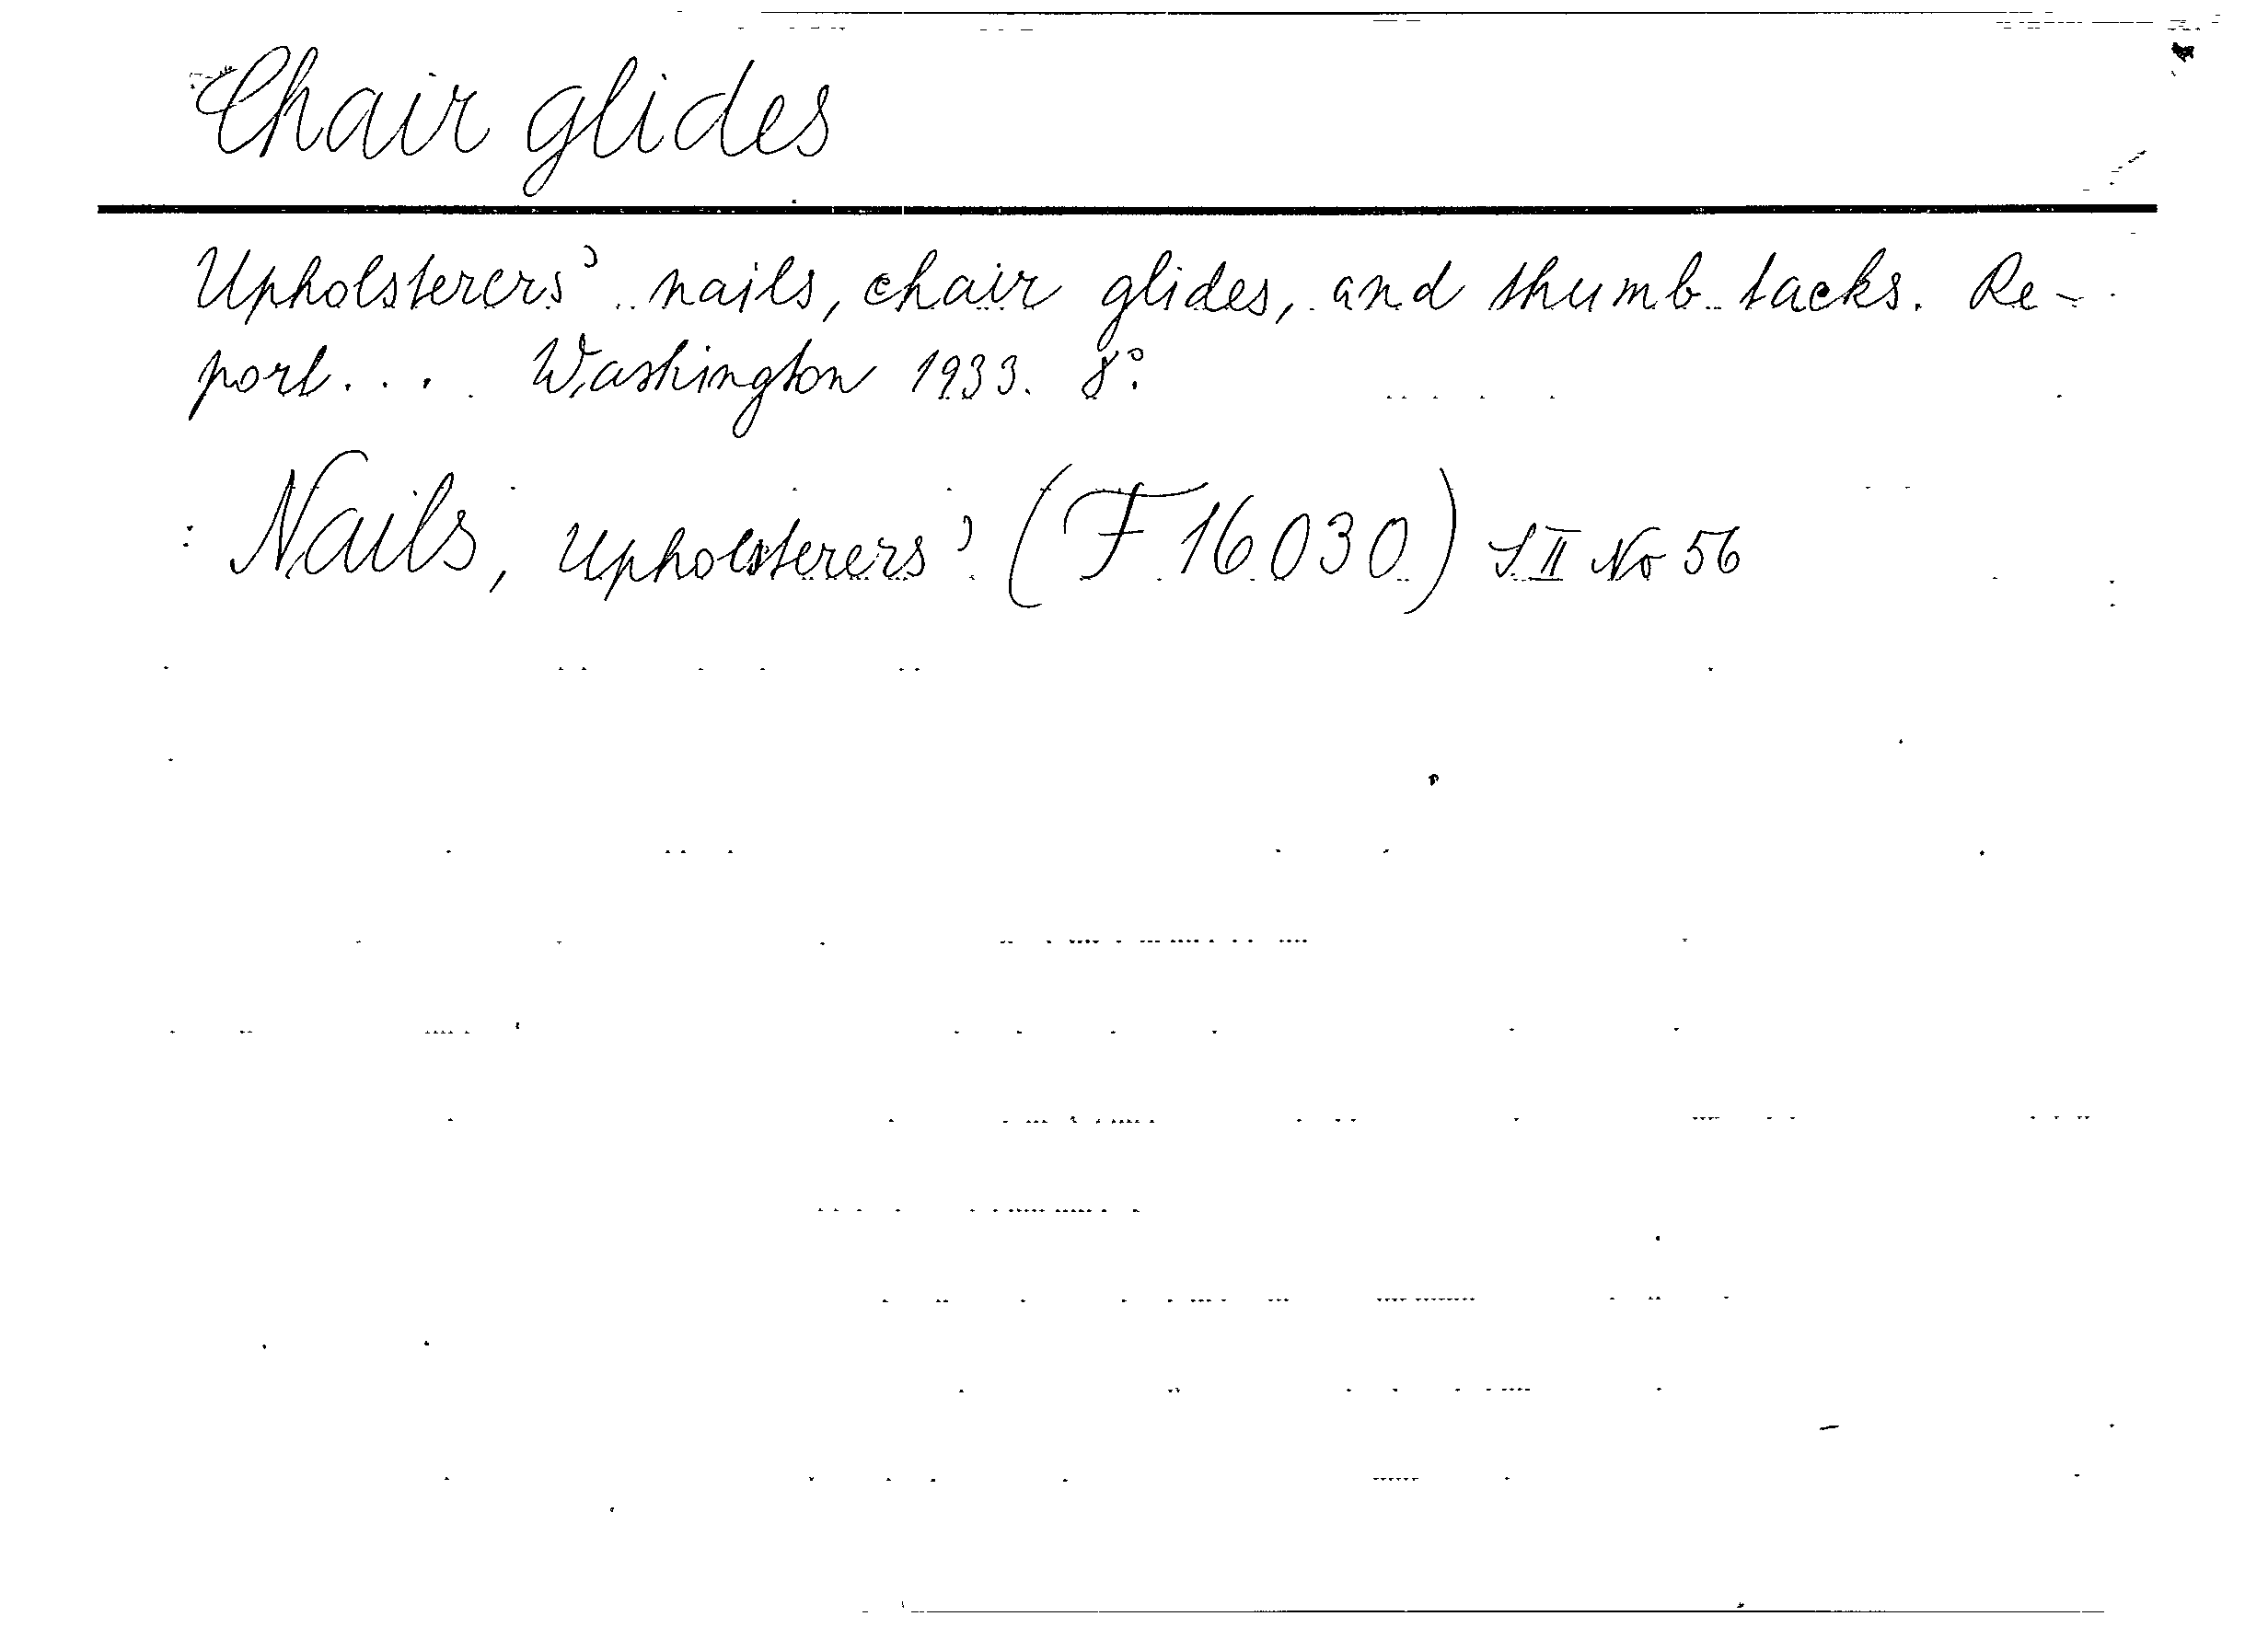 Chair glides
Upholsterers' nails, chair glides, and thumb tacks. Re-
port... Washington 1933. 8°.
Nails, Upholsterers' (F 16030) S II No 56